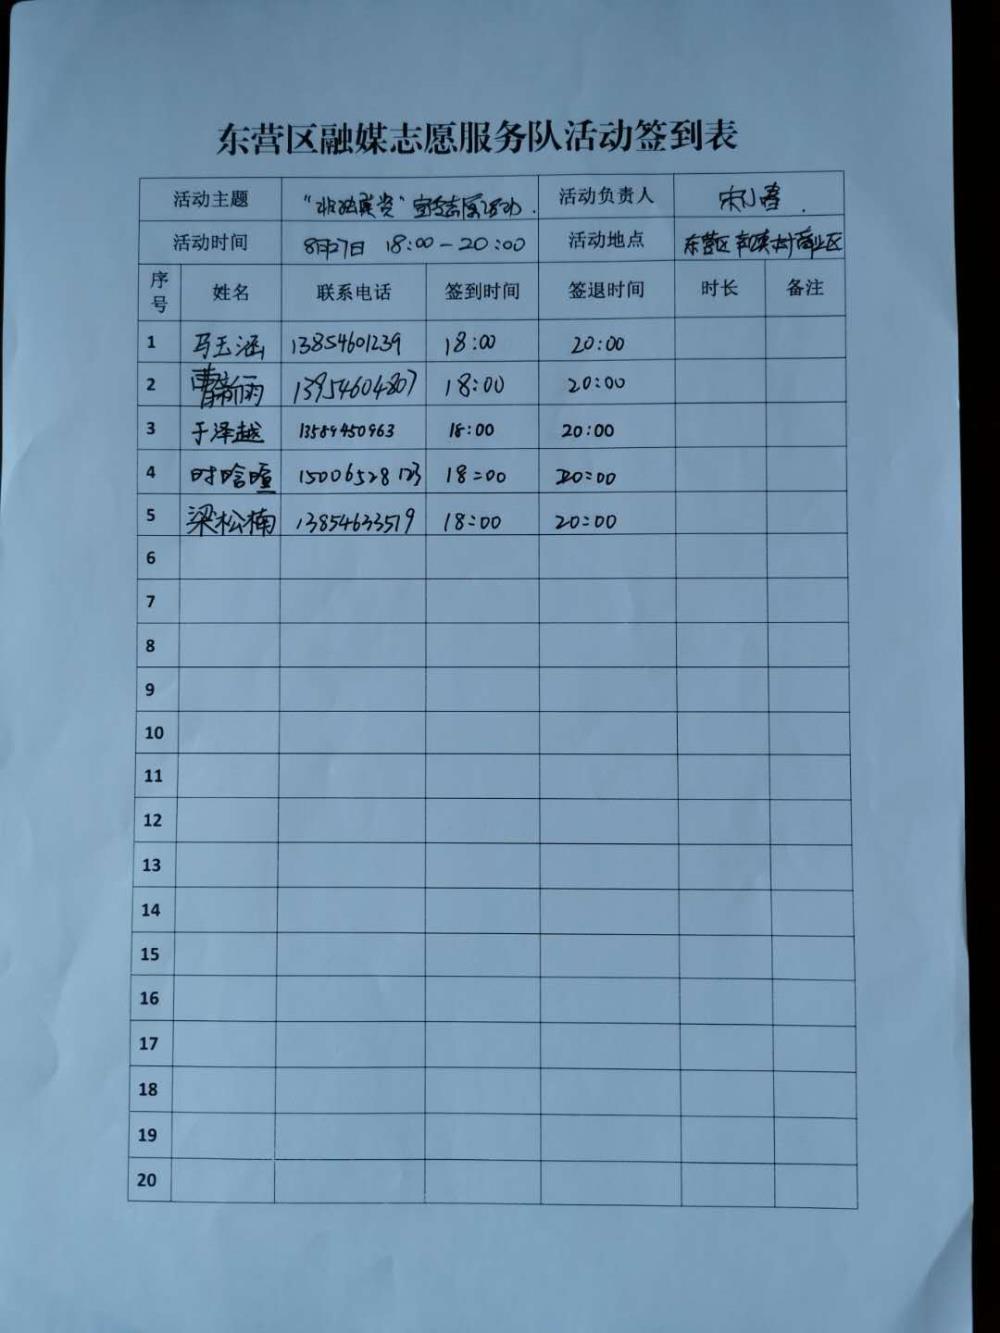 东营区融媒志愿服务队活动签到表
活动主题 "非法集资"宣传志愿活动. 活动负责人
活动时间 8月27日 18:00-20:00 活动地点 东营区 商业区
序号 姓名 联系电话 签到时间 签退时间 时长 备注
1 马玉涵 13854601239 18:00 20:00
2 曹新雨 13954604807 18:00 20:00
3 于泽越 13589450963 18:00 20:00
4 时晗暄 15006528123 18:00 20:00
5 梁松楠 13854633519 18:00 20:00
6
7
8
9
10
11
12
13
14
15
16
17
18
19
20